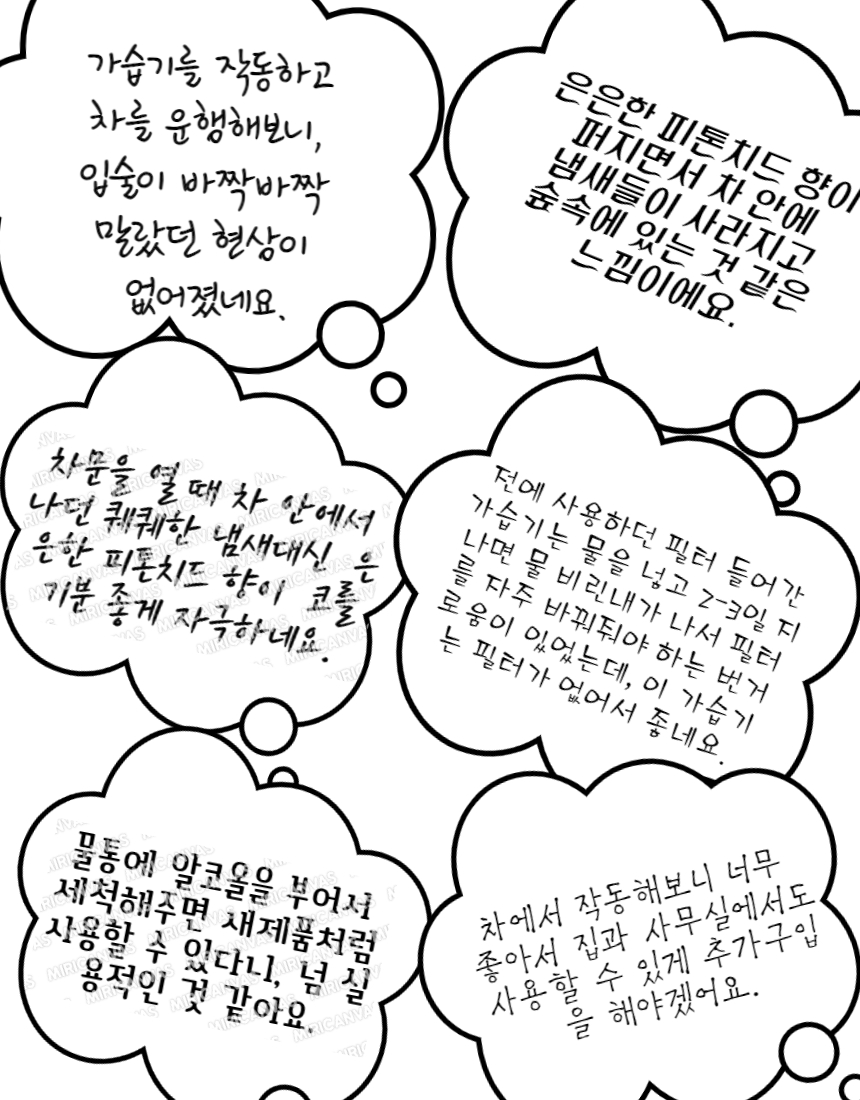 가습기를 작동하고
차를 운행해보니,
입술이 바짝바짝
말랐던 현상이
없어졌네요.
은은한 피톤치드 향이
퍼지면서 차 안에
냄새들이 사라지고
숲 속에 있는 것 같은
느낌이에요.
차문을 열 때 차 안에서
나던 퀘퀘한 냄새대신 은
은한 피톤치드 향이 코를
기분 좋게 자극하네요.
전에 사용하던 필터 들어간
가습기는 물을 넣고 2-3일 지
나면 물 비린내가 나서 필터
를 자주 바꿔줘야 하는 번거
로움이 있었는데, 이 가습기
는 필터가 없어서 좋네요.
물통에 알코올을 부어서
세척해주면 새제품처럼
사용할 수 있다니, 넘 실
용적인 것 같아요.
차에서 작동해보니 너무
좋아서 집과 사무실에서도
사용할 수 있게 추가구입
을 해야겠어요.